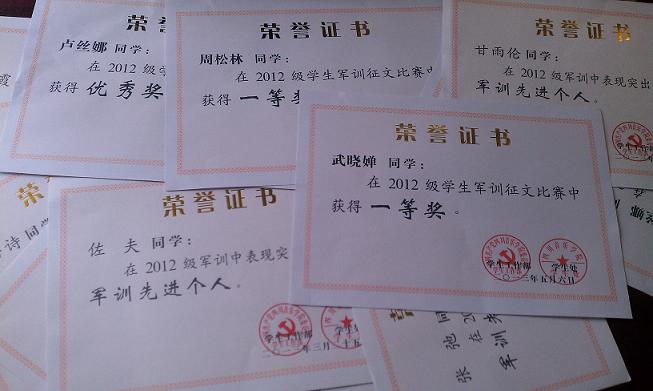 荣誉证书
卢丝娜 同学：
在 2012 级
获得 优秀奖
荣誉证书
周松林 同学：
在 2012 级学生军训征文比赛中
获得 一等奖
荣誉证书
甘雨伦同学：
在 2012 级军训中表现突出
军训先进个人。
荣誉证书
武晓婵 同学：
在 2012 级学生军训征文比赛中
获得 一等奖 。
学生工作部 学生处
二〇一二年五月六日
荣誉证书
佐 夫 同学：
在 2012 级军训中表现突
军训先进个人。
学生工作部 学生处
诗 同
张 弛 同
在 20
军训